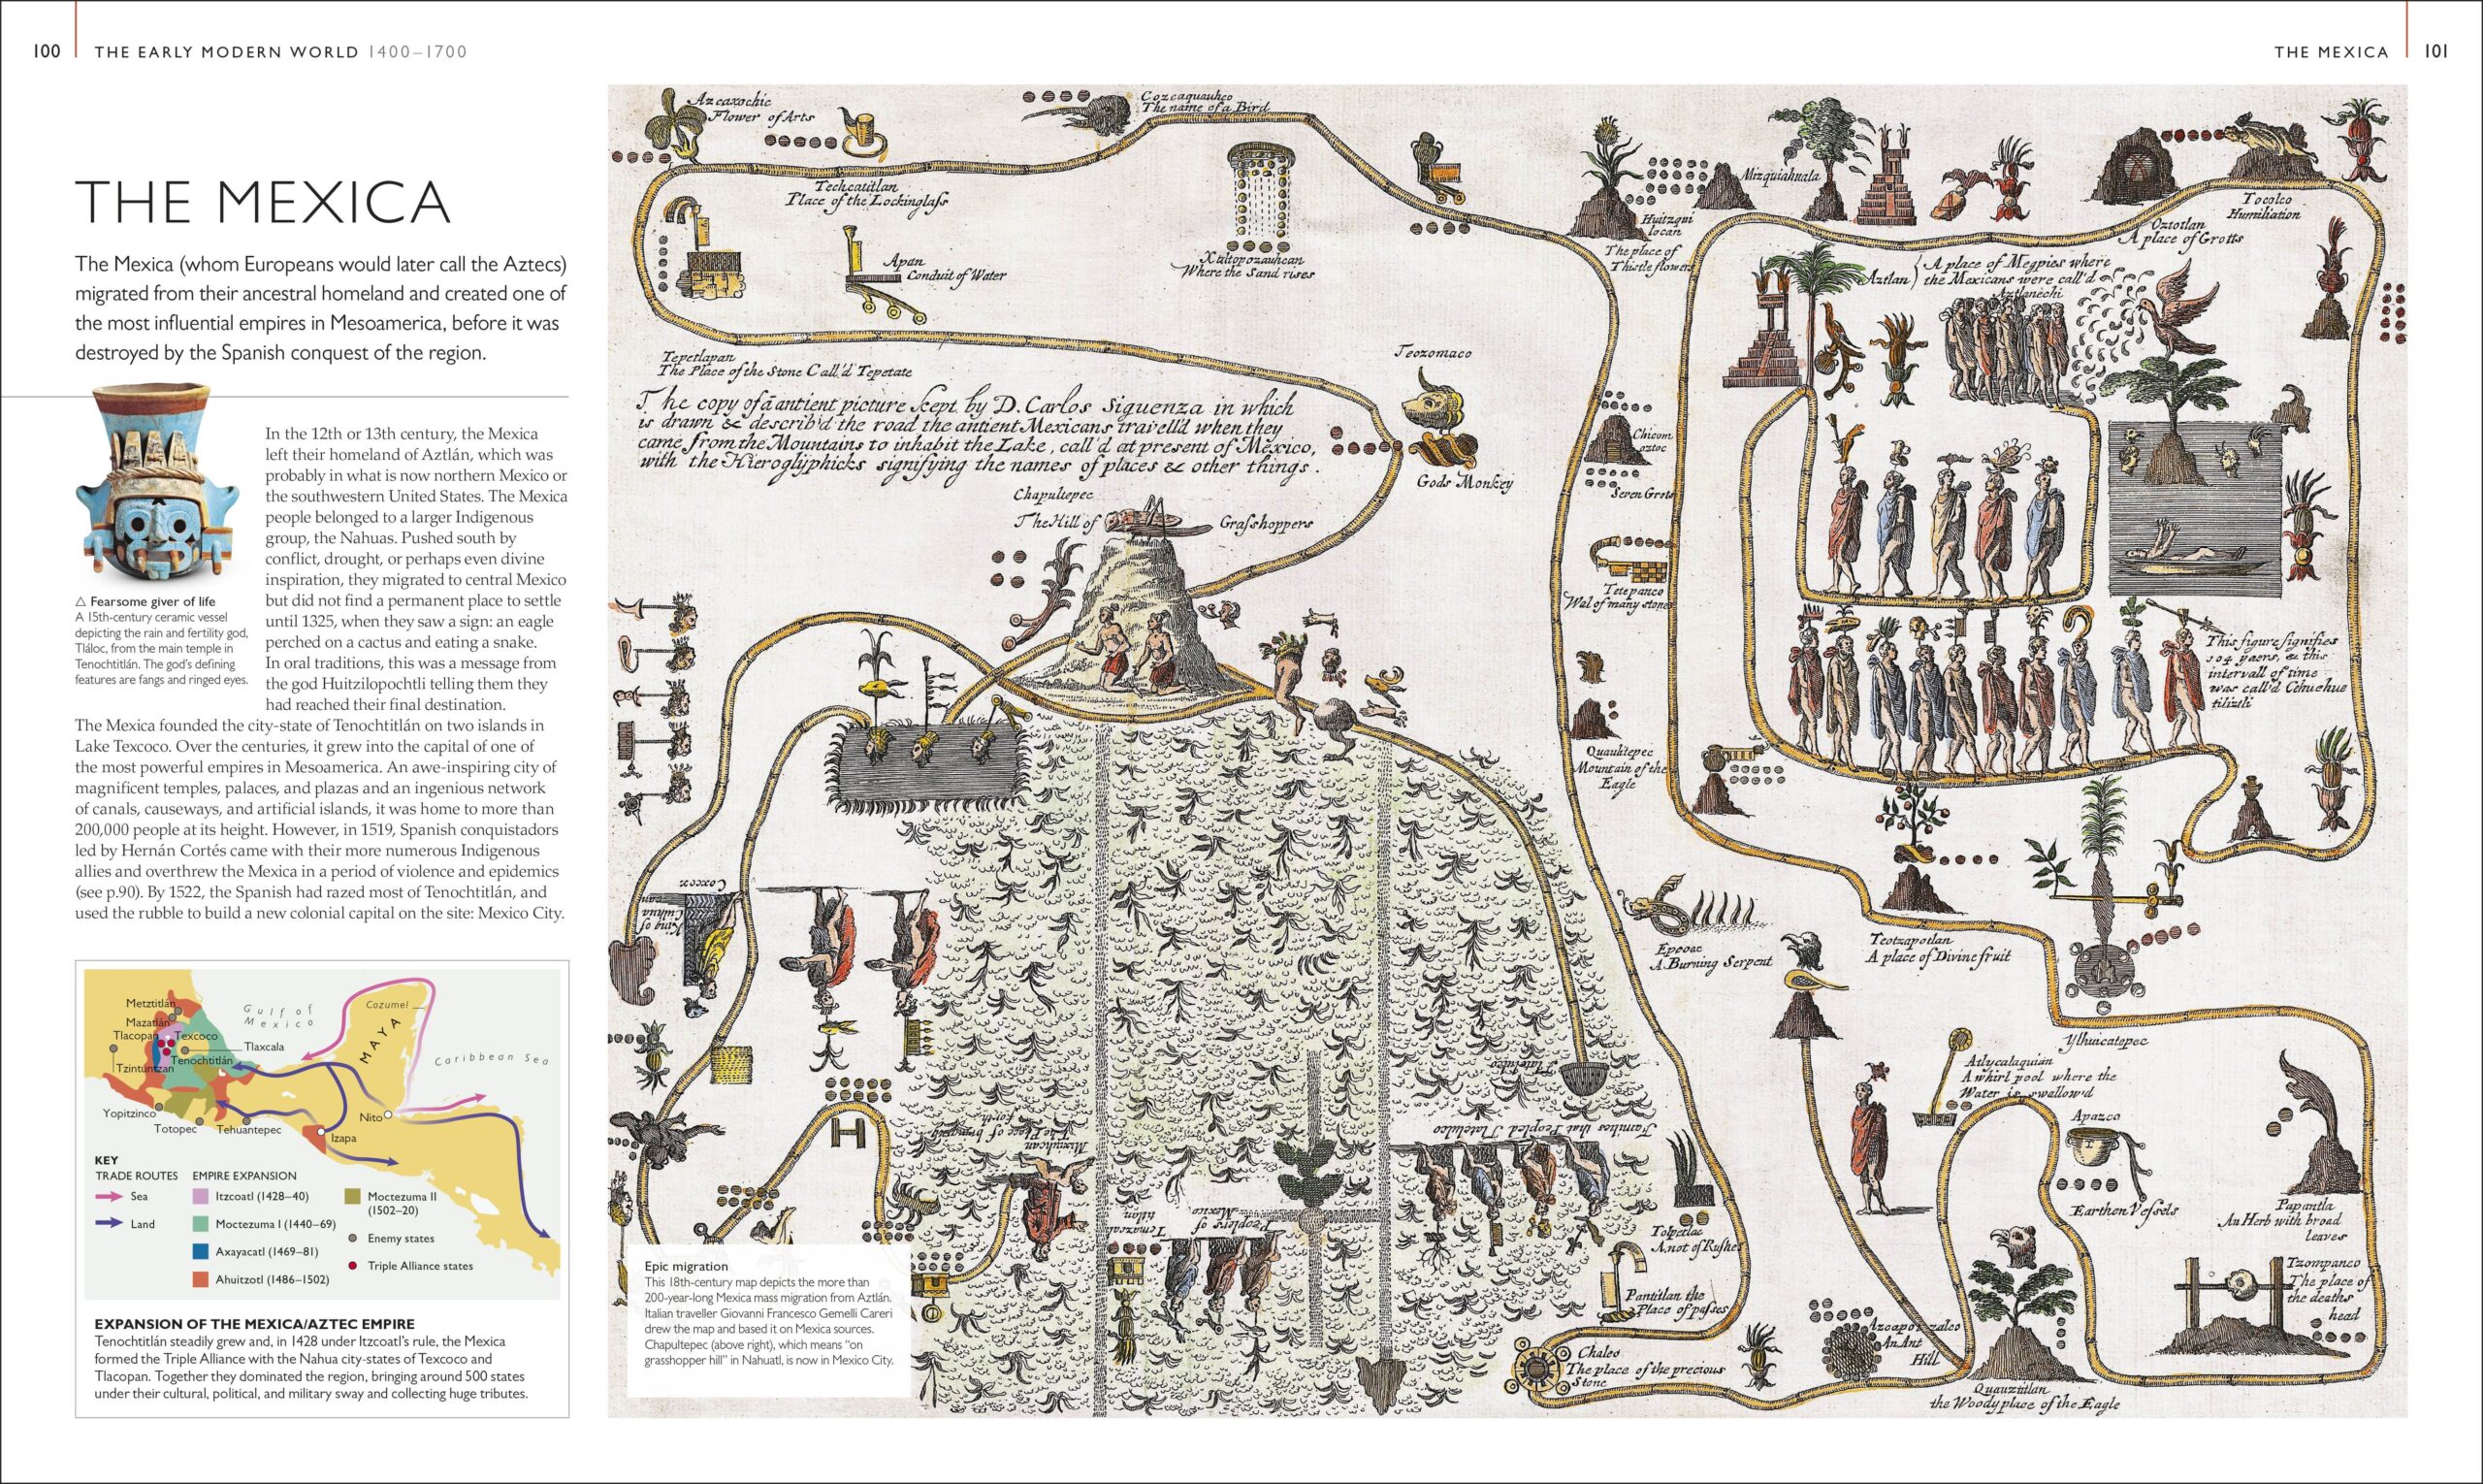 100
THE EARLY MODERN WORLD 1400–1700
THE MEXICA
101
THE MEXICA
The Mexica (whom Europeans would later call the Aztecs)
migrated from their ancestral homeland and created one of
the most influential empires in Mesoamerica, before it was
destroyed by the Spanish conquest of the region.
In the 12th or 13th century, the Mexica
left their homeland of Aztlán, which was
probably in what is now northern Mexico or
the southwestern United States. The Mexica
people belonged to a larger Indigenous
group, the Nahuas. Pushed south by
conflict, drought, or perhaps even divine
inspiration, they migrated to central Mexico
but did not find a permanent place to settle
until 1325, when they saw a sign: an eagle
perched on a cactus and eating a snake.
In oral traditions, this was a message from
the god Huitzilopochtli telling them they
had reached their final destination.
The Mexica founded the city-state of Tenochtitlán on two islands in
Lake Texcoco. Over the centuries, it grew into the capital of one of
the most powerful empires in Mesoamerica. An awe-inspiring city of
magnificent temples, palaces, and plazas and an ingenious network
of canals, causeways, and artificial islands, it was home to more than
200,000 people at its height. However, in 1519, Spanish conquistadors
led by Hernán Cortés came with their more numerous Indigenous
allies and overthrew the Mexica in a period of violence and epidemics
(see p.90). By 1522, the Spanish had razed most of Tenochtitlán, and
used the rubble to build a new colonial capital on the site: Mexico City.
△ Fearsome giver of life
A 15th-century ceramic vessel
depicting the rain and fertility god,
Tláloc, from the main temple in
Tenochtitlán. The god's defining
features are fangs and ringed eyes.
Metztitlán
Mazatlán
Tlacopan
Texcoco
Tlaxcala
Tenochtitlán
Tzintúntzan
Yopitzinco
Totopec
Tehuantepec
Gulf of
Mexico
Cozumel
MAYA
Caribbean Sea
Nito
Izapa
KEY
TRADE ROUTES
Sea
Land
EMPIRE EXPANSION
Itzcoatl (1428–40)
Moctezuma I (1440–69)
Axayacatl (1469–81)
Ahuitzotl (1486–1502)
Moctezuma II
(1502–20)
Enemy states
Triple Alliance states
EXPANSION OF THE MEXICA/AZTEC EMPIRE
Tenochtitlán steadily grew and, in 1428 under Itzcoatl's rule, the Mexica
formed the Triple Alliance with the Nahua city-states of Texcoco and
Tlacopan. Together they dominated the region, bringing around 500 states
under their cultural, political, and military sway and collecting huge tributes.
Azcaxochic
Flower of Arts
Cozcaquauhco
The name of a Bird
Techcatitlan
Place of the Lockinglass
Apan
Conduit of Water
Xaltopozauhcan
Where the Sand rises
Tepetlapan
The Place of the Stone Call'd Tepetate
The copy of ā antient picture kept by D. Carlos Siguenza in which
is drawn & describ'd the road the antient Mexicans travell'd when they
came from the Mountains to inhabit the Lake, call'd at present of Mexico,
with the Hieroglyphicks signifying the names of places & other things.
Teozomaco
Gods Monkey
Chapultepec
The Hill of Grasshoppers
Huitzqui
locan
The place of
Thistle flowers
Mizquiahuala
Oztotlan
A place of Grotts
Tocolco
Humiliation
Aztlan
A place of Megpies where
the Mexicans were call'd
Aztlanechi
Chicom
oztoc
Seven Grots
Tetepanco
Wal of many stones
Quauhtepec
Mountain of the
Eagle
This figure signifies
104 yaers, & this
intervall of time
was call'd Cehuehue
tiliztli
Epcoac
A Burning Serpent
Teotzapotlan
A place of Divine fruit
Ylhuicatepec
Atlycalaquian
A whirl pool where the
Water is swallow'd
Apazco
Earthen Vessels
Papantla
An Herb with broad
leaves
Tzompanco
The place of
the deaths
head
Azcapotzalco
An Ant
Hill
Quauztitlan
the Woody place of the Eagle
Chalco
The place of the precious
Stone
Pantitlan the
Place of passes
Tolpetlac
A not of Rushes
Coxcox
King of
Culhua
can
Tlatelulco
Families that Peopled Tlatelulco
Mixiuhcan
The Place of bringing
forth
Temazcal
titlan
Peoplers of
Mexico
Epic migration
This 18th-century map depicts the more than
200-year-long Mexica mass migration from Aztlán.
Italian traveller Giovanni Francesco Gemelli Careri
drew the map and based it on Mexica sources.
Chapultepec (above right), which means "on
grasshopper hill" in Nahuatl, is now in Mexico City.